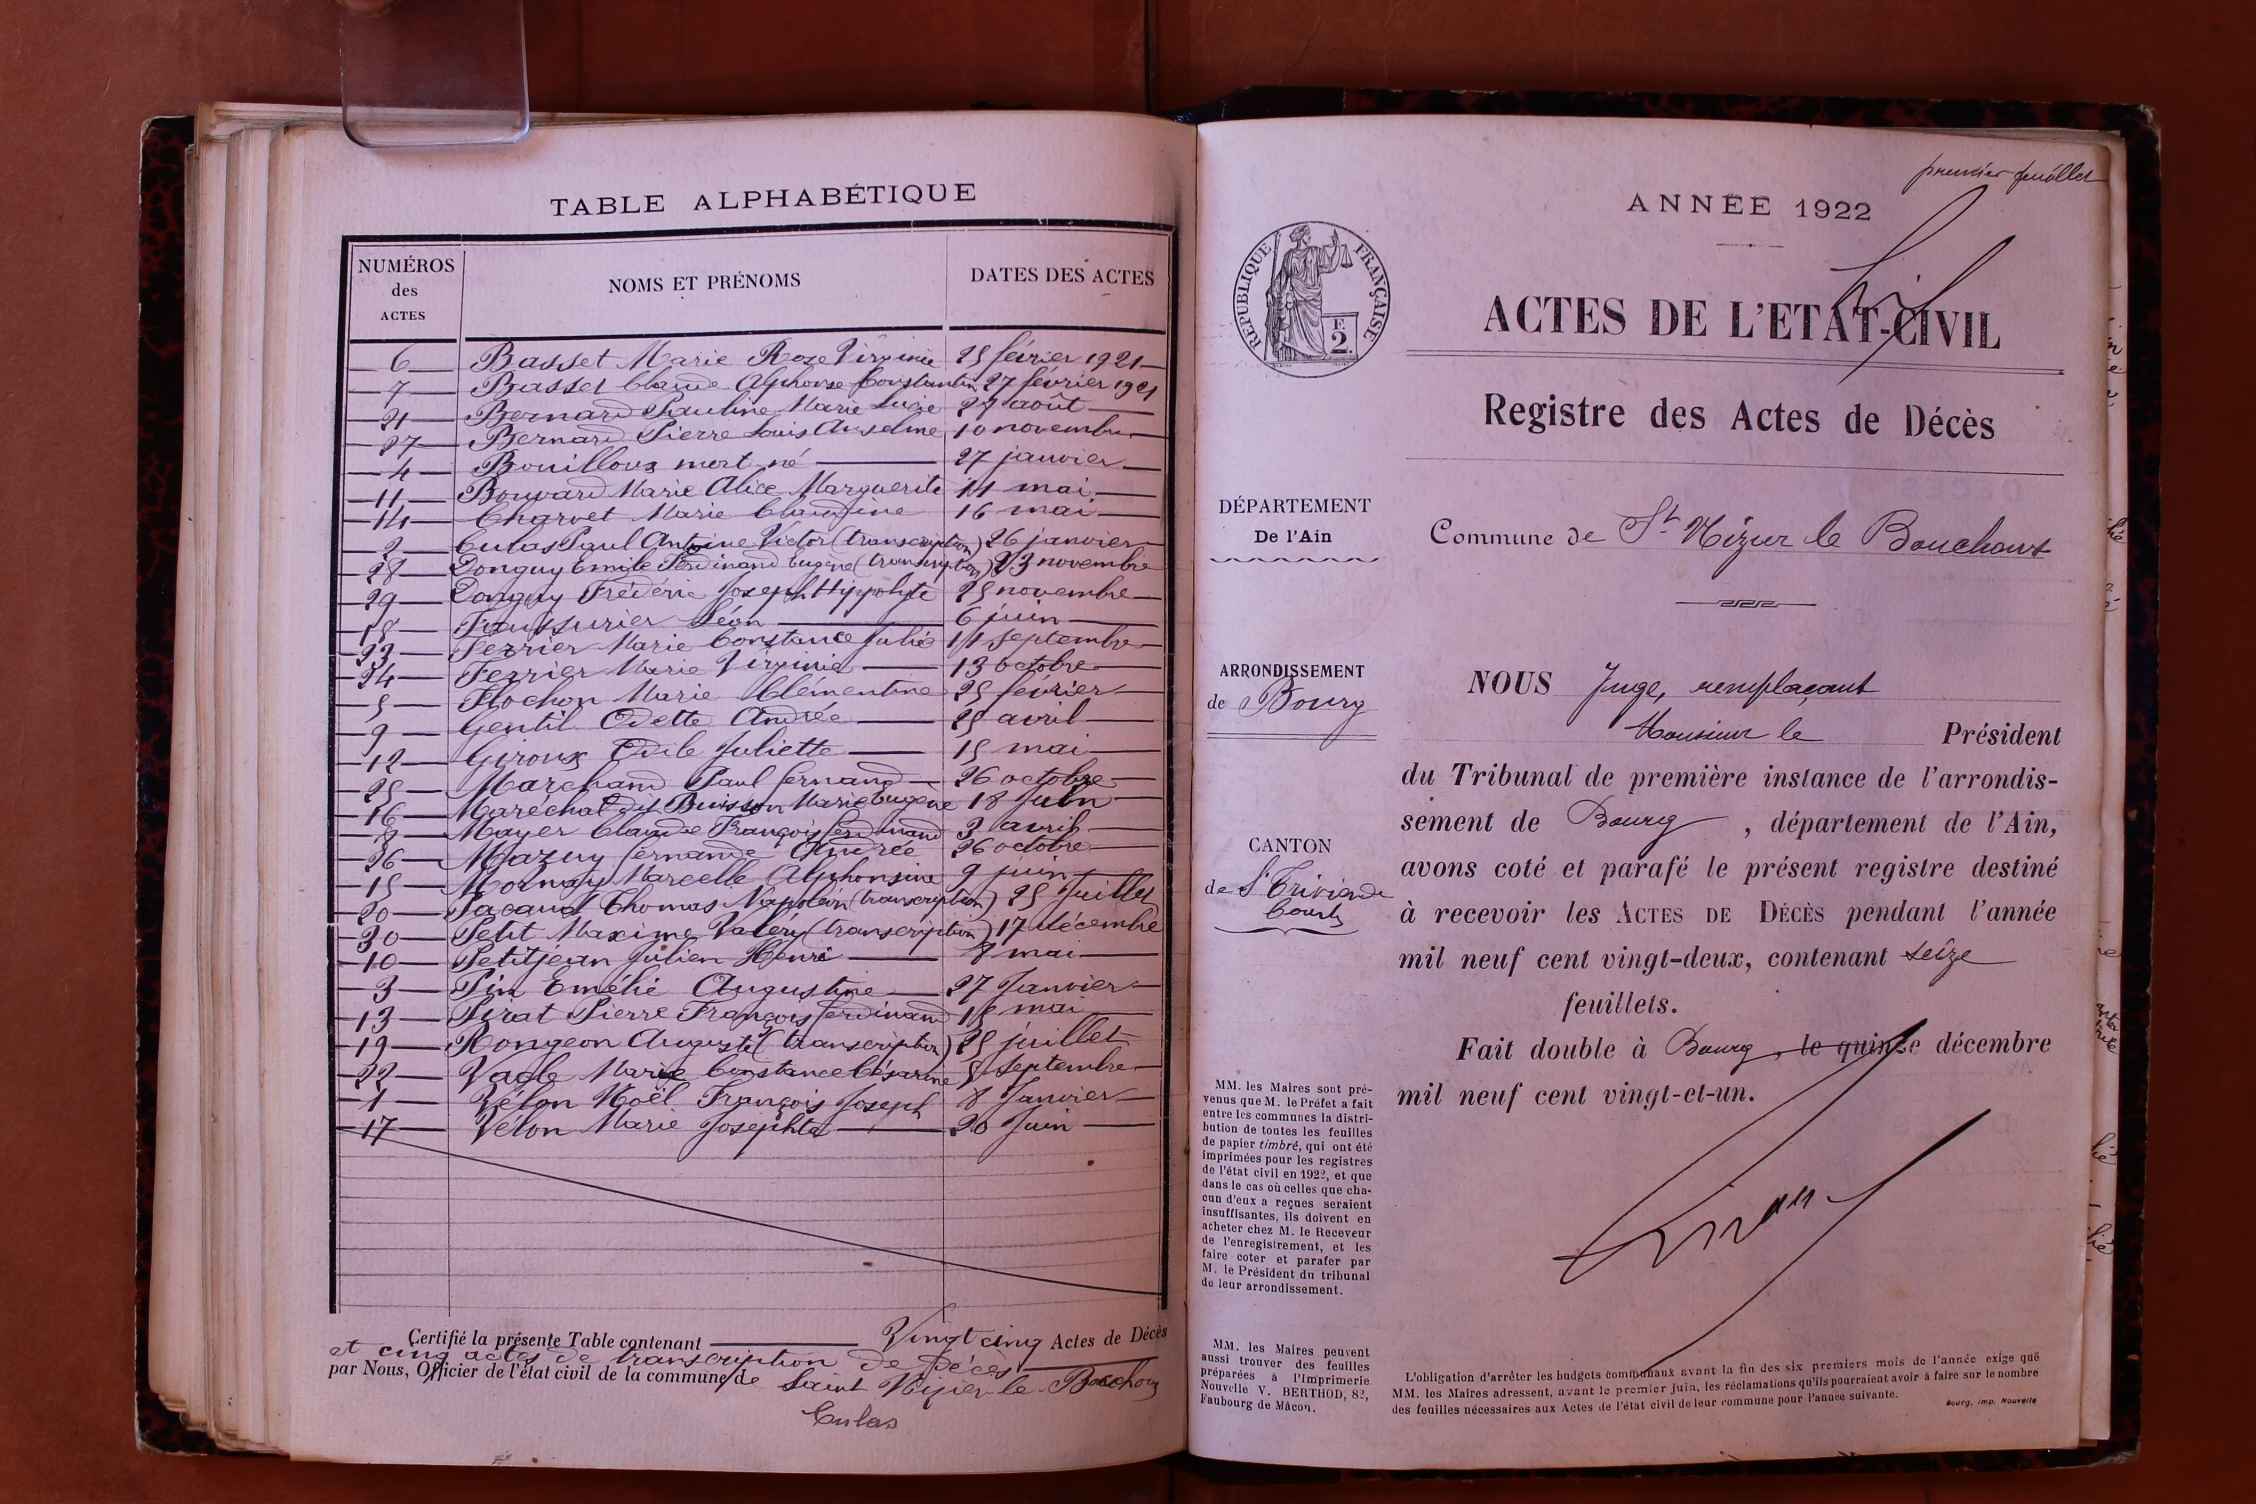 TABLE ALPHABÉTIQUE
NUMÉROS des ACTES NOMS ET PRÉNOMS DATES DES ACTES
6 Basset Marie Rose Virginie 25 février 1921
7 Basset Claude Alphonse Constantin 27 février 1921
21 Bernard Pauline Marie Luize 27 août
27 Bernard Pierre Louis Anselme 10 novembre
4 Bouilloux mort né 27 janvier
11 Bouvard Marie Alice Marguerite 14 mai
14 Charvet Marie Claudine 16 mai
2 Culas Paul Antoine Victor (transcription) 26 janvier
28 Donguy Emile Ferdinand Eugène (transcription) 23 novembre
29 Donguy Frédéric Joseph Hippolyte 25 novembre
18 Léon 6 juin
23 Ferrier Marie Constance Julie 14 septembre
24 Ferrier Marie Virginie 13 octobre
5 Flochon Marie Clémentine 25 février
9 Gentil Odette Andrée 25 avril
12 Giroux Odile Juliette 15 mai
25 Marchand Paul Fernand 26 octobre
16 Maréchal dit Buisson Marie Eugène 18 Juin
8 Mayer Claude François Ferdinand 3 avril
26 Mazuy Fernande Andrée 26 octobre
15 Mornay Marcelle Alphonsine 9 juin
20 Pacaud Thomas Napoléon (transcription) 25 Juillet
30 Petit Maxime Valéry (transcription) 17 décembre
10 Petitjean Julien Henri 8 mai
3 Pin Emélie Augustine 27 Janvier
13 Pirat Pierre François Ferdinand 15 mai
19 Rongeon Auguste (transcription) 25 juillet
22 Vacle Marie Constance Césarine 5 septembre
1 Vélon Noël François Joseph 8 Janvier
17 Velon Marie Josephte 20 Juin
Certifié la présente Table contenant Vingt cinq Actes de Décès
et cinq actes de transcription de décès
par Nous, Officier de l'état civil de la commune de Saint Nizier le Bouchoux
Culas
premier feuillet
ANNÉE 1922
RÉPUBLIQUE FRANÇAISE
F.
2.
ACTES DE L'ETAT-CIVIL
Registre des Actes de Décès
DÉPARTEMENT
De l'Ain
Commune de St Nizier le Bouchoux
ARRONDISSEMENT
de Bourg
NOUS Juge, remplaçant
Monsieur le Président
du Tribunal de première instance de l'arrondis-
sement de Bourg, département de l'Ain,
avons coté et parafé le présent registre destiné
à recevoir les ACTES DE DÉCÈS pendant l'année
mil neuf cent vingt-deux, contenant seize
feuillets.
Fait double à Bourg, le quinze décembre
mil neuf cent vingt-et-un.
CANTON
de St Trivier de
Courtes
MM. les Maires sont pré-
venus que M. le Préfet a fait
entre les communes la distri-
bution de toutes les feuilles
de papier timbré, qui ont été
imprimées pour les registres
de l'état civil en 1922, et que
dans le cas où celles que cha-
cun d'eux a reçues seraient
insuffisantes, ils doivent en
acheter chez M. le Receveur
de l'enregistrement, et les
faire coter et parafer par
M. le Président du tribunal
de leur arrondissement.
MM. les Maires peuvent
aussi trouver des feuilles
préparées à l'Imprimerie
Nouvelle V. BERTHOD, 82,
Faubourg de Mâcon.
L'obligation d'arrêter les budgets communaux avant la fin des six premiers mois de l'année exige que
MM. les Maires adressent, avant le premier juin, les réclamations qu'ils pourraient avoir à faire sur le nombre
des feuilles nécessaires aux Actes de l'état civil de leur commune pour l'année suivante.
Bourg, imp. Nouvelle